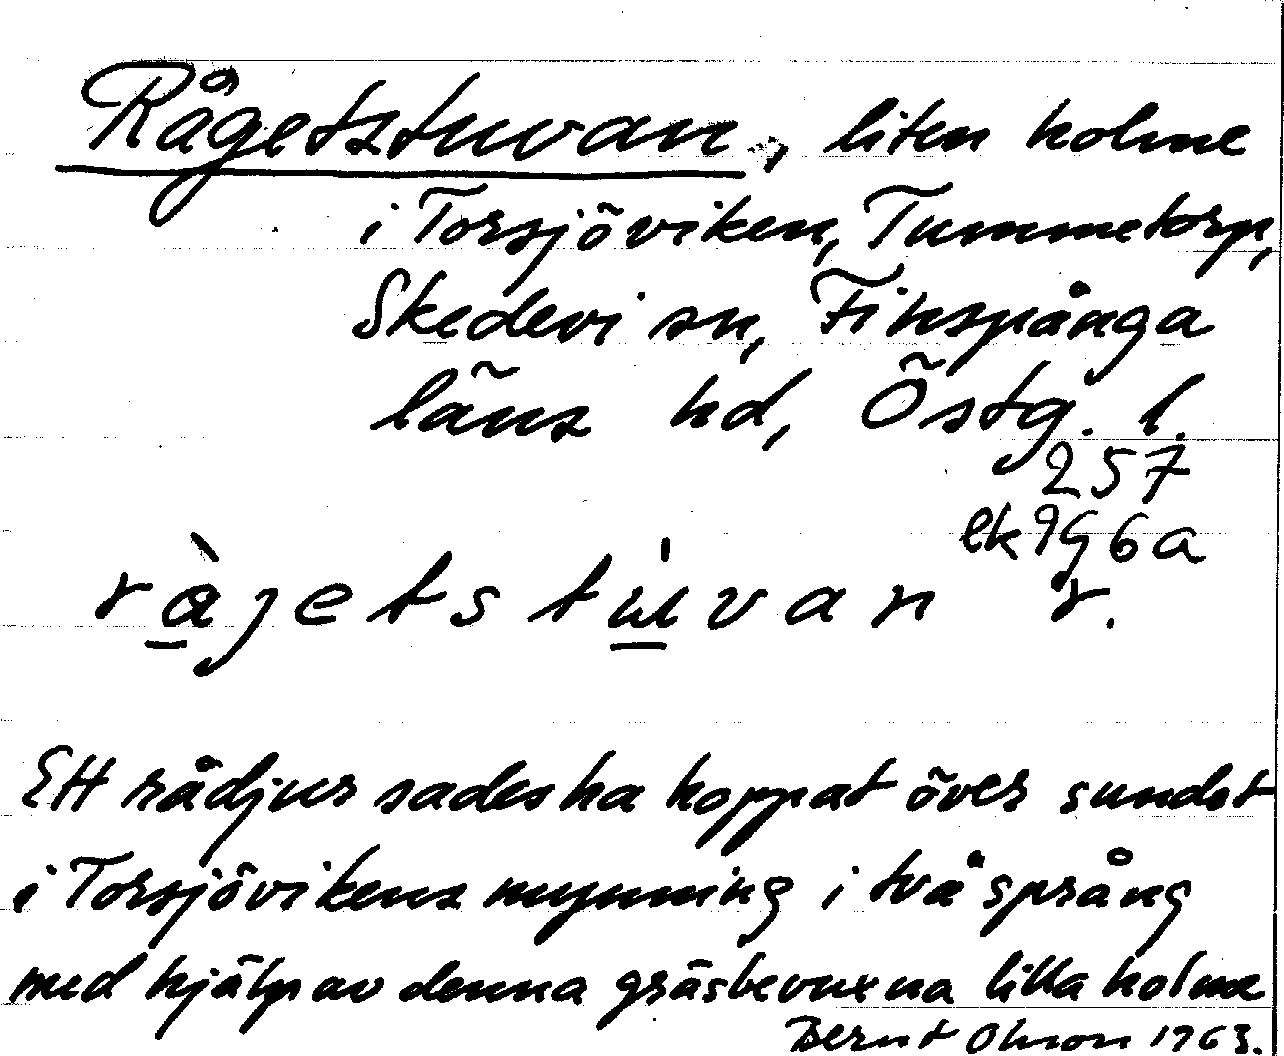 Rågetstuvan, liten holme
i Torsjöviken, Tummetorp,
Skedevi sn, Finspånga
läns hd, Östg. l.
257
ek 9G6a
ràgetstu̍van r.
Ett rådjur sades ha hoppat över sundet
i Torsjövikens mynning i två språng
med hjälp av denna gräsbevuxna lilla holme
Bernt Olsson 1963.